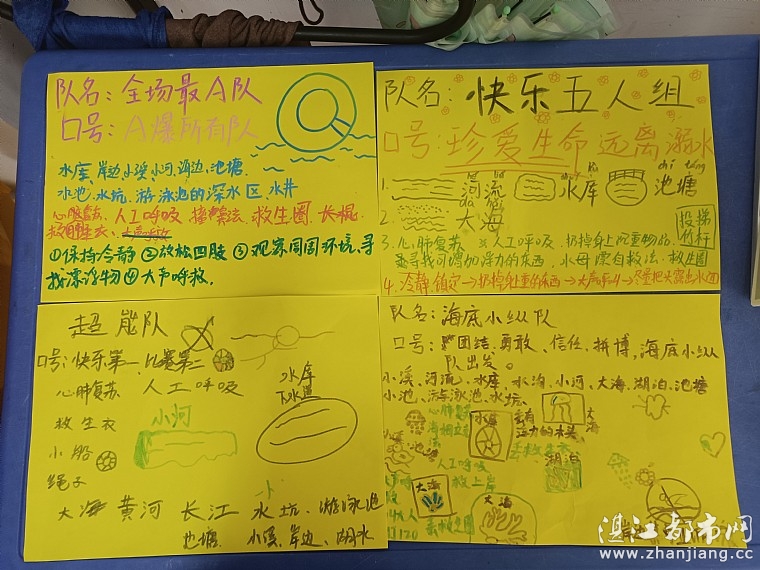 队名：全场最A队
口号：A爆所有队
水库、岸边、小溪、小河、海边、池塘
水池、水坑、游泳池的深水区、水井
心肺复苏、人工呼吸 救生圈、长棍
救生衣、
①保持冷静②放松四肢③观察周围环境、寻
找漂浮物④大声呼救.
队名：快乐五人组
口号：珍爱生命 远离溺水
1. 河流 水库 池塘
2. 大海
3. 心肺复苏 人工呼吸、扔掉身上沉重物品
寻找可增加浮力的东西、水母漂自救法、救生圈
投掷竹杆
4. 冷静、镇定→扔掉身上重的东西→大声呼叫→尽量把头露出水面
超能队
口号：快乐第一，比赛第二
心肺复苏 人工呼吸
水库
下水道
救生衣
小河
小船
绳子
大海 黄河 长江 水坑、游泳池
池塘、小溪、岸边、湖水
队名：海底小纵队
口号：团结、勇敢、信任、拼搏，海底小纵
队出发。
小溪、河流、水库、水沟、小河、大海、湖泊、池塘
小池、游泳池、水坑、
心肺复苏
水库
大海
人工呼吸
湖泊
大海
大海
120
湛江都市网
www.zhanjiang.cc